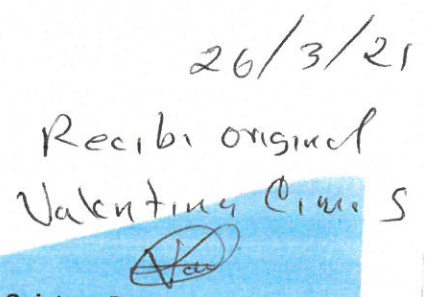 26/3/21
Recibi original
Valentina